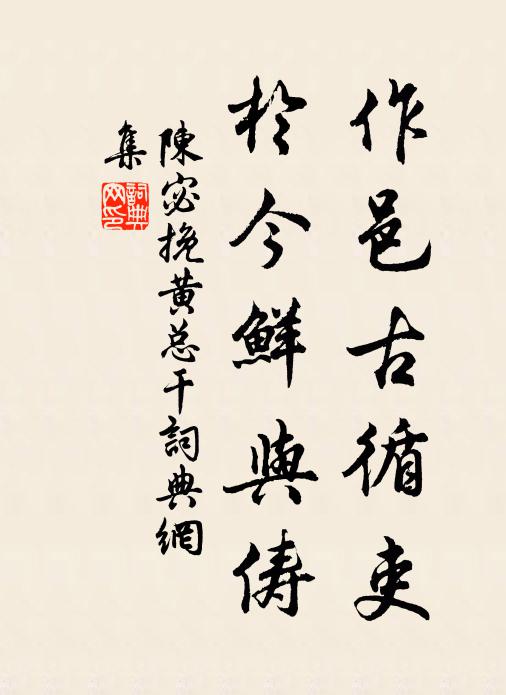 作邑古循吏
於今鮮與儔
陳宓挽黄总干詞典網
集
詞典
网印